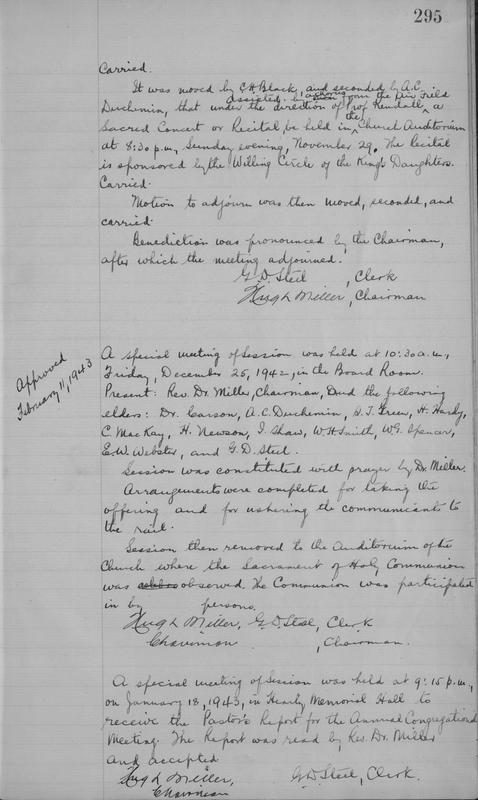 295
Carried.
It was moved by C.H. Black, and seconded by A.C.
assisted by a chorus from the Air Field
Duchemin, that under the direction of Prof Kendall, a
Sacred Concert or Recital be held in the Church Auditorium
at 8:30 p.m, Sunday evening, November 29. The Recital
is sponsored by the Willing Circle of the King's Daughters.
Carried.
Motion to adjourn was then moved, seconded, and
carried.
Benediction was pronounced by the Chairman,
after which the meeting adjourned.
G.D. Steel, Clerk
Hugh Miller, Chairman
Approved
February 11, 1943
A special meeting of Session was held at 10:30 a.m.,
Friday, December 25, 1942, in the Board Room.
Present: Rev. Dr. Miller, Chairman, and the following
elders: Dr. Carson, A.C. Duchemin, Green, H. Hardy,
C. MacKay, H. Newson, I. Shaw, W.H. Smith, W.G. Spencer,
E.W. Webster, and G.D. Steel.
Session was constituted with prayer by Dr. Miller.
Arrangements were completed for taking the
offering and for ushering the communicants to
the rail.
Session then removed to the Auditorium of the
Church where the Sacrament of Holy Communion
was observed. The Communion was participated
in by persons.
Hugh Miller, G.D. Steel, Clerk
Chairman , Chairman.
A special meeting of Session was held at 9:15 p.m.,
on January 18, 1943, in Heartz Memorial Hall to
receive the Pastor's Report for the Annual Congregational
Meeting. The Report was read by Rev. Dr. Miller
and accepted
Hugh Miller, G.D. Steel, Clerk.
Chairman